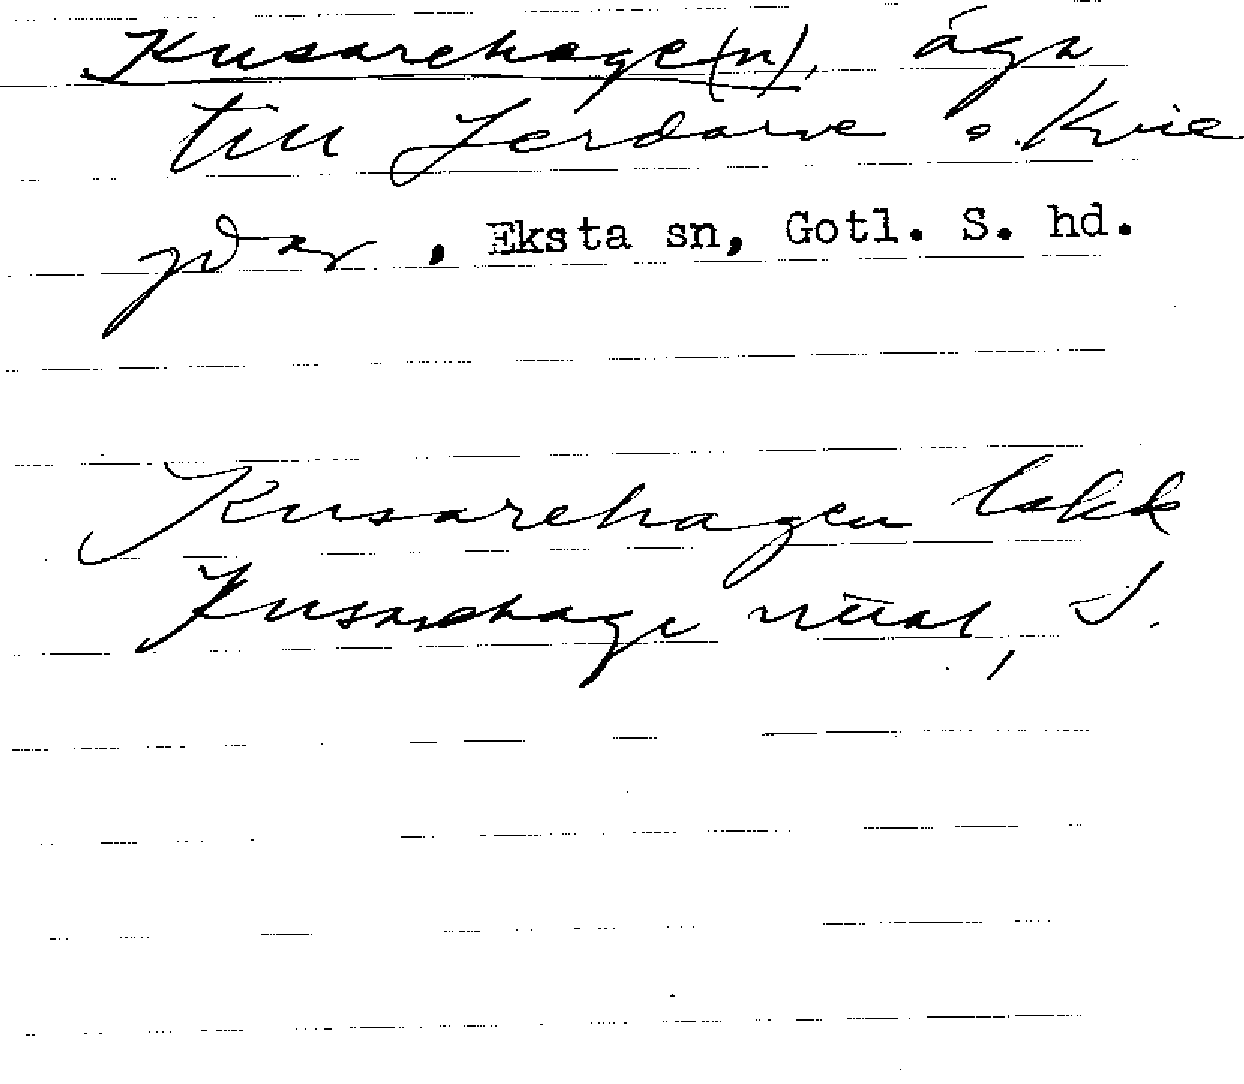 Kusarehage(n), ägn
till Lerdarve o. Kvie
gdar, Eksta sn, Gotl. S. hd.
Kusarehagen
Kusarehage S.